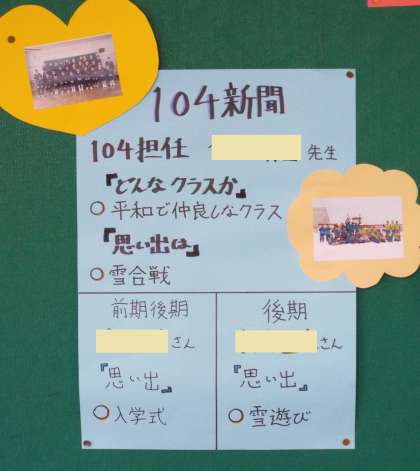 104新聞
104担任 先生
『どんなクラスか』
○平和で仲良しなクラス
『思い出は』
○雪合戦
前期後期
さん
『思い出』
○入学式
後期
さん
『思い出』
○雪遊び